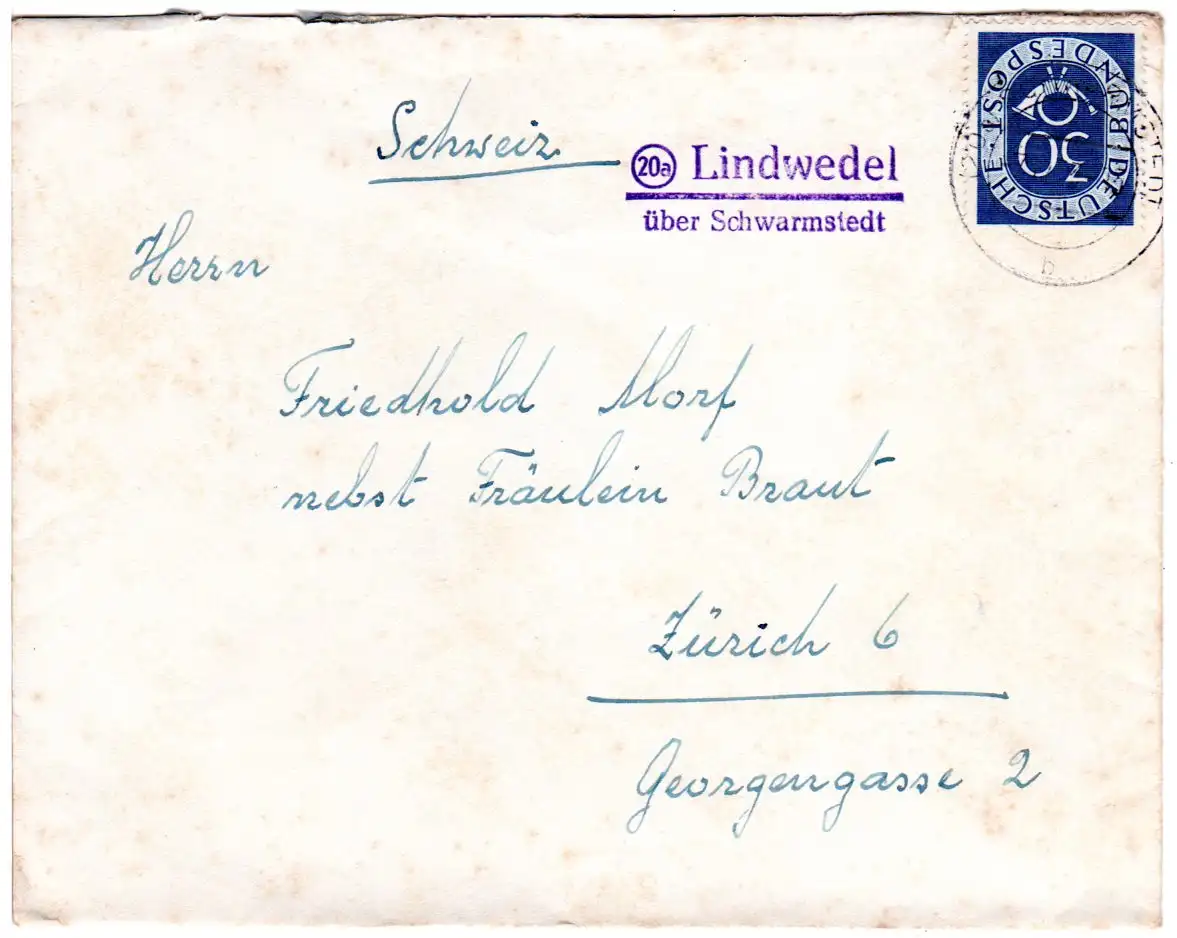 Schweiz
20a Lindwedel
über Schwarmstedt
DEUTSCHE BUNDESPOST
30
b
Herrn
Friedhold Morf
nebst Fräulein Braut
Zürich 6
Georgengasse 2